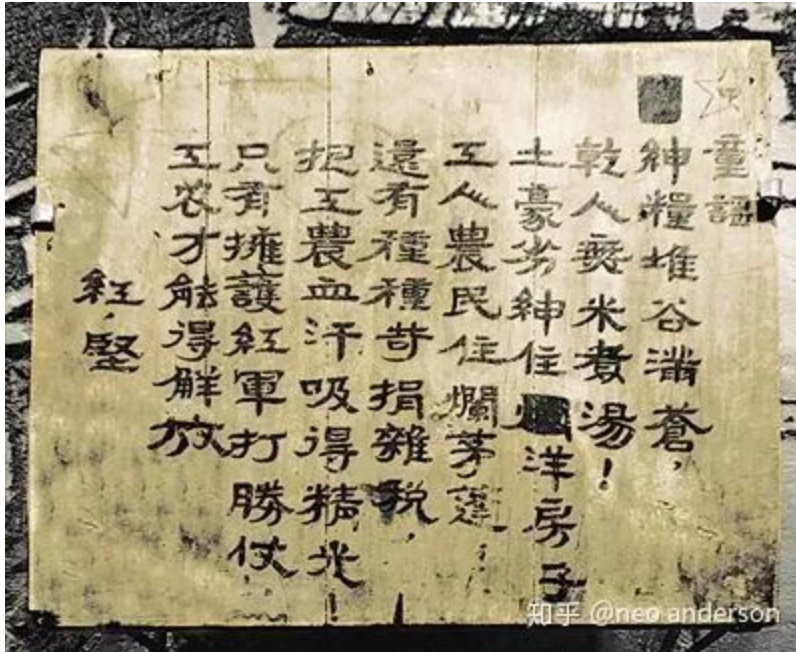 童謠
紳糧堆谷滿蒼，
乾人無米煮湯！
土豪劣紳住洋房子
工人農民住爛茅蓬．
還有種種苛捐雜税，
把工農血汗吸得精光！
只有擁護紅軍打勝仗
工农才能得解放
紅．堅
知乎 @neo anderson